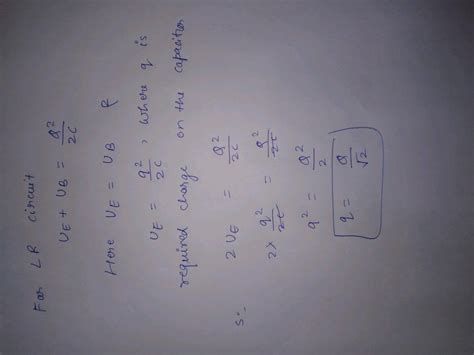 For LR circuit
U_E + U_B = Q²/2C
Here U_E = U_B &
U_E = q²/2C , where q is
required charge on the capacitor
S:- 2U_E = Q²/2C
2× q²/2C = Q²/2C
q² = Q²/2
q = Q/√2